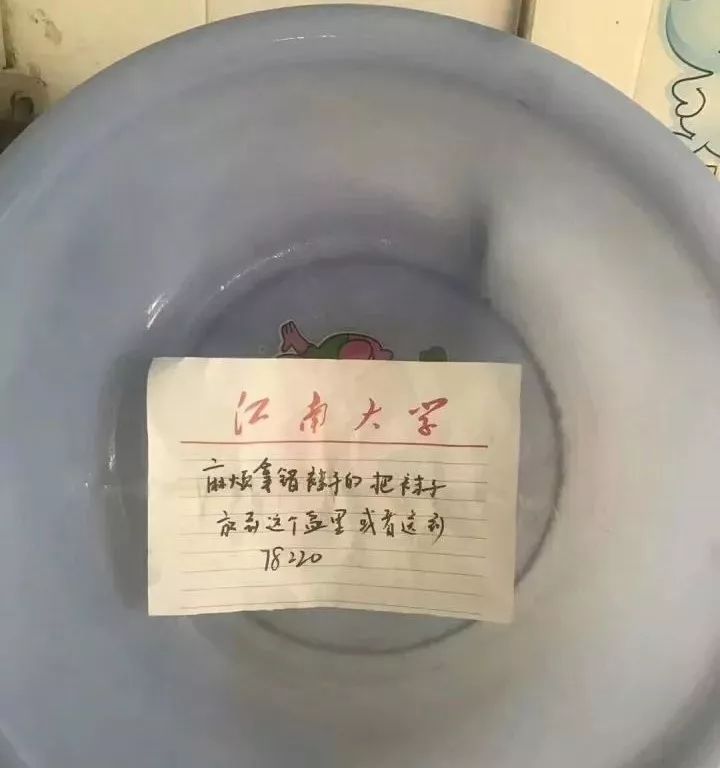 江南大学
麻烦拿错袜子的把袜子
放到这个盆里或者送到
78220